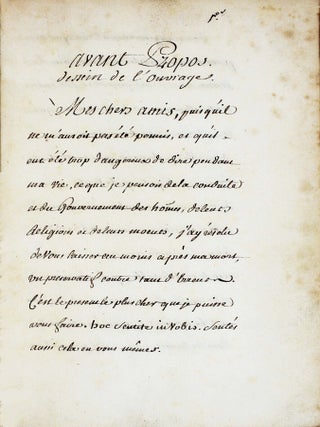 avant Propos.
dessein de l'ouvrage.
Mes chers amis, puis qu'il
ne m'auroit pas été permis, et qu'il
eut été trop dangereux de dire pendant
ma vie, ce que je pensois de la conduite
et du Gouvernement des hõmes, de leurs
Religions et de leurs moeurs, j'ay résolu
de vous laisser au moins après ma mort,
contre tant d'Erreurs.
C'est le present le plus cher que je puisse
vous faire. hoc sentite in Vobis. Sentés
aussi cela en vous mêmes.